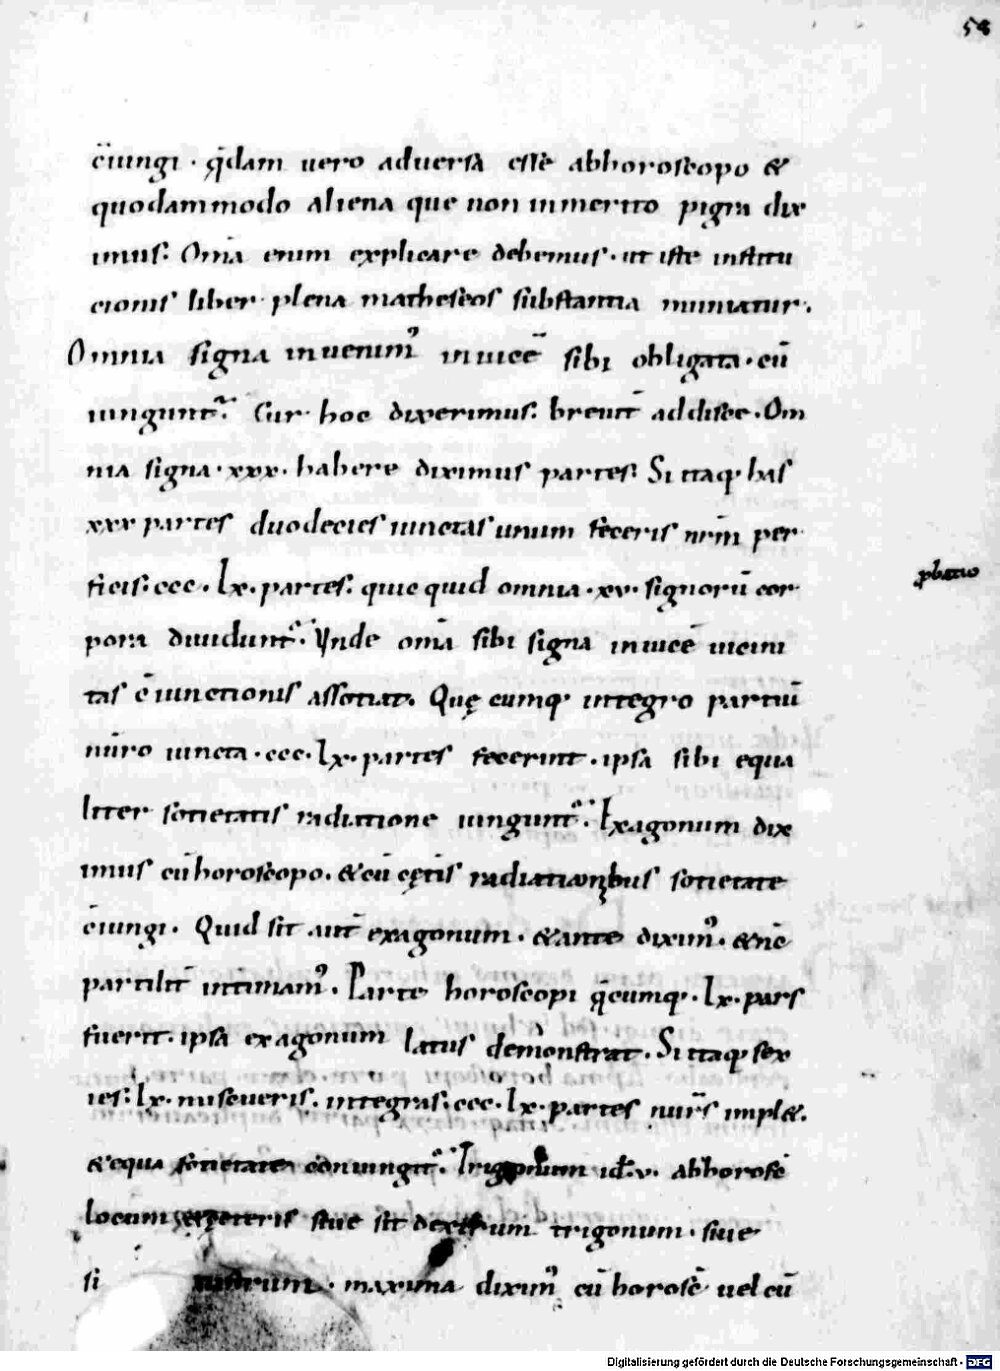 58
c̄iungi · q̄dam uero aduersa esse abhoroscopo &
quodammodo aliena que non inmerito pigra dix
imus: Om̄ia enim explicare debemus · ut iste institu
cionis liber plena matheseos substantia muniatur.
Omnia signa inuenimꝰ inuicē sibi obligata · cū
iungunt᷑. Cur hoc dixerimus: breuit̄ addisce. Om
nia signa · xxx · habere diximus partes: Si itaq has
xxx partes duodecies iunctas unum feceris nrm̄ per
ficis: ccc · lx · partes: quicquid omnia · xv · signorū cor
pora diuidunt᷑. Vnde om̄a sibi signa inuicē uicini
tas c̄iunctionis assotiat. Quę cumq integro partiū
num̄ro iuncta · ccc · lx · partes fecerint · ipsa sibi equa
liter sotietatis radiatione iungunt᷑. Exagonum dix
imus cū horoscopo · & cū cęt̄is radiationibus sotietate
c̄iungi. Quid sit aut̄ exagonum · & ante diximꝰ · & nc̄
partilit̄ intimamꝰ. Parte horoscopi q̄cumq · lx · pars
fuerit · ipsa exagonum latus demonstrat. Si itaq sex
ies: lx · miscueris · integras · ccc · lx · partes num̄s impl&.
& equa sotietate conuingit᷑. Trigonum id · v · abhorosc̄
locum sive sit dextrum trigonum · siue
si · maxima diximꝰ cū horosc̄ uel cū
ꝓbatio
Digitalisierung gefördert durch die Deutsche Forschungsgemeinschaft · DFG